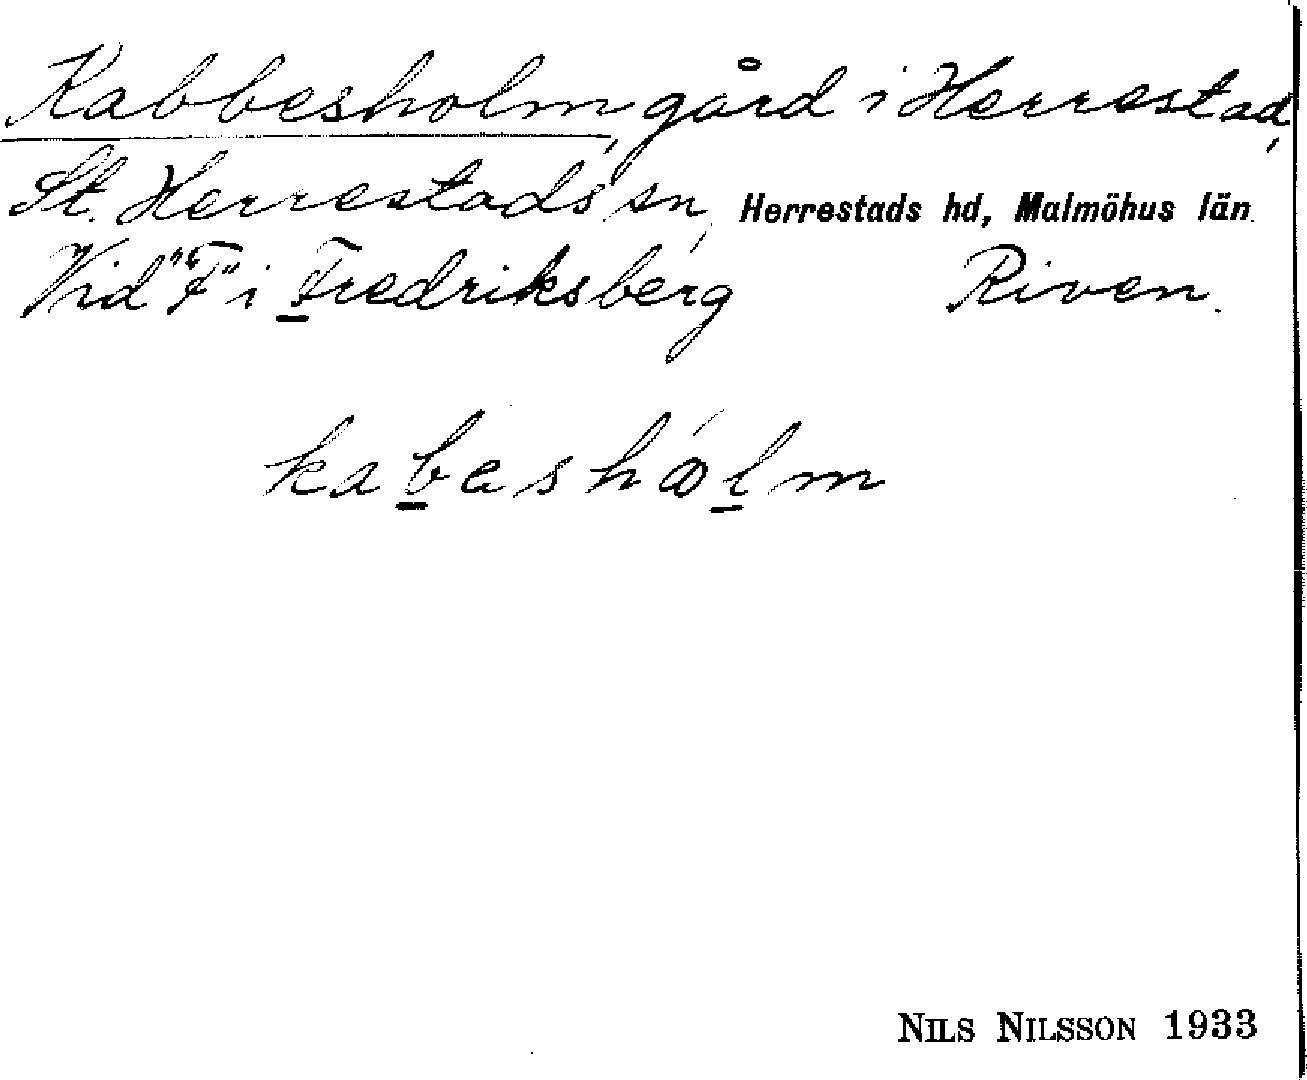 Kabbesholm, gård i Herrestad,
St. Herrestads sn, Herrestads hd, Malmöhus län.
Vid "F" i Fredriksberg Riven.
kabeshålm
NILS NILSSON 1933